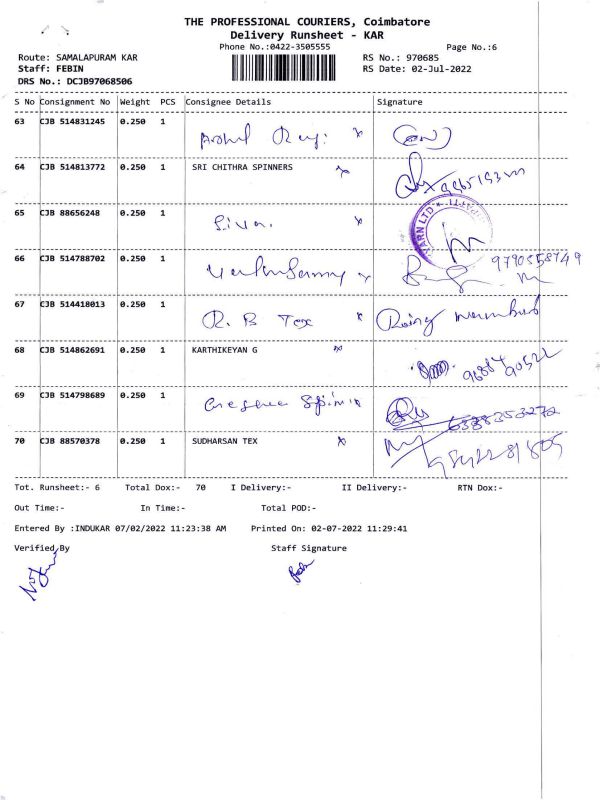 THE PROFESSIONAL COURIERS, Coimbatore
Delivery Runsheet - KAR
Phone No.:0422-3505555 Page No.:6
Route: SAMALAPURAM KAR RS No.: 970685
Staff: FEBIN RS Date: 02-Jul-2022
DRS No.: DCJB97068506
S No Consignment No Weight PCS Consignee Details Signature
63 CJB 514831245 0.250 1
64 CJB 514813772 0.250 1 SRI CHITHRA SPINNERS
65 CJB 88656248 0.250 1 Siva.
YARN LTD
66 CJB 514788702 0.250 1 9790558749
67 CJB 514418013 0.250 1 R. B Tex
68 CJB 514862691 0.250 1 KARTHIKEYAN G
69 CJB 514798689 0.250 1
70 CJB 88570378 0.250 1 SUDHARSAN TEX
Tot. Runsheet:- 6 Total Dox:- 70 I Delivery:- II Delivery:- RTN Dox:-
Out Time:- In Time:- Total POD:-
Entered By :INDUKAR 07/02/2022 11:23:38 AM Printed On: 02-07-2022 11:29:41
Verified By Staff Signature